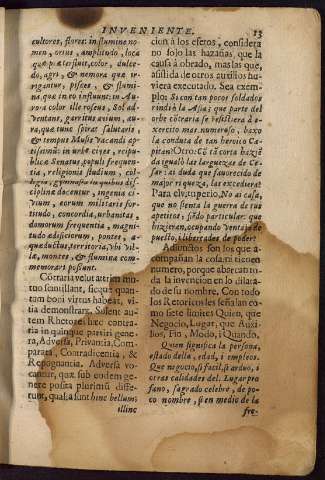 INVENIENTE. 13
cultores, flores: in flumine no-
men, ortus, amplitudo, loca
quæ præterfluit, color, dulce-
do, agri, & nemora quæ ir-
rigantur, pisces, & flumi-
na quæ in eo influunt: in Au-
rora color ille roseus, Sol ad-
ventans, garritus avium, au-
ra, quæ tunc spirat salutaris,
& tempus Musis vacandi ap-
tissimũ: in urbe cives, reipu-
blicæ Senatus, populi frequen-
tia, religionis studium, col-
legia, gymnasia in quibus di-
sciplinæ docentur, ingenia ci-
vium, eorum militaris for-
titudo, concordia, urbanitas,
domorum frequentia, magni-
tudo ædificiorum, pontes, a-
quæductus, territoria, ubi vil-
læ, montes, & flumina com-
memorari possunt.
Cõtraria velut attritu mu-
tuo scintillant, sicque quan-
tum boni virtus habeat, vi-
tia demonstrant. Solent au-
tem Rhetores hæc contra-
ria in quinque partiri gene-
ra, Adversa, Privantia, Com-
parata, Contradicentia, &
Repugnantia. Adversa vo-
cantur, quæ sub eodem ge-
nere posita plurimũ diffe-
runt, qualia sunt hinc bellum,
illinc
cion à los efetos, considera
no solo las hazañas, que la
causa à obrado, mas las que,
assistida de otros auxilios hu-
viera executado. Sea exem-
plo: Si con tan pocos soldados
rindiò la Asia: que parte del
orbe cõtraria se resistiera à e-
xercito mas numeroso, baxo
la conduta de tan heroico Ca-
pitan? Otro: Cõ tã corta haziẽ-
da igualò las larguezas de Ce-
sar: ai duda que favorecido de
major riqueza, las excediera?
Para el vituperio, No ai casa,
que no sienta la guerra de sus
apetitos, siẽdo particular: que
hizieran, ocupando
puesto, i librados de poder?
Adjunctos son los que a-
compañan la cosa, ni tienen
numero, porque abarcan to-
da la invencion en lo dilata-
do de su nombre. Con todo
los Retoricos les señalan co-
mo siete limites Quien, que
Negocio, Lugar, que Auxi-
lio, Fin, Modo, i Quando.
Quien significa la persona,
estado della, edad, i empleos.
Que negocio, si facil, si arduo, i
otras calidades del. Lugar pro-
fano, sagrado celebre, de po-
co nombre, si en medio de la
fre-